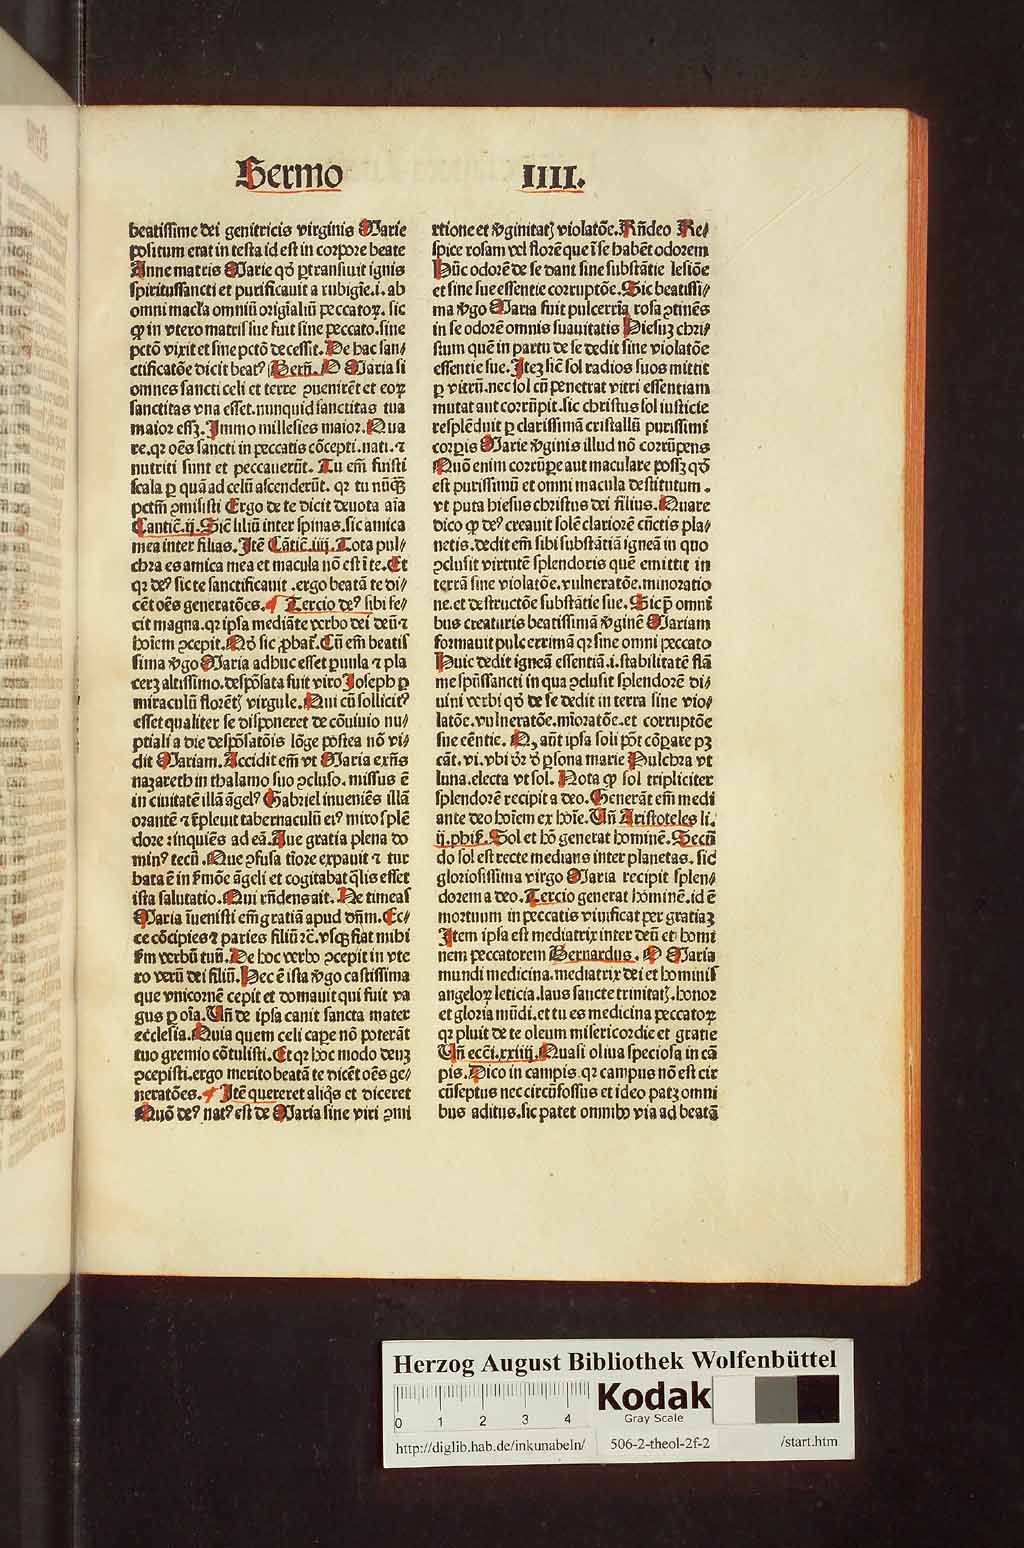 Sermo IIII.
beatissime dei genitricis virginis Marie
positum erat in testa id est in corpore beate
Anne matris Marie qđ ꝑtransiuit ignis
spiritussancti et purificauit a rubigīe.i. ab
omni macl̓a omniū orig̓ialiū peccatoꝝ. sic
ꝙ in vtero matris sue fuit sine peccato. sine
pctō vixit et sine pctō decessit. De hac san⸗
ctificatōe dicit beatꝰ Bern̄. O Maria si
omnes sancti celi et terre ꝯuenirēt et eoꝝ
sanctitas vna esset. nunquid sanctitas tua
maior essꝫ. Immo millesies maior. Qua
re. qꝛ oēs sancti in peccatis cōcepti. nati. ⁊
nutriti sunt et peccauerūt. Tu em̄ fuisti
scala ꝑ quā ad celū ascenderūt. qꝛ tu nūqͣꝫ
pctm̄ ꝯmisisti Ergo de te dicit deuota aīa
Cantic̄. ij. Sic̄ liliū inter spinas. sic amica
mea inter filias. Itē Cātic̄. iiij. Tota pul⸗
chra es amica mea et macula nō est ī te. Et
qꝛ deꝰ sic te sanctificauit. ergo beatā te di⸗
cēt oēs generatōes. ¶ Tercio deꝰ sibi fe⸗
cit magna. qꝛ ipsa mediāte verbo dei deū ⁊
hoīem ꝯcepit. Qđ sic ꝓbat̄. Cū em̄ beatis
sima v̓go Maria adhuc esset ꝑuula ⁊ pla
cerꝫ altissimo. despōsata fuit viro Joseph ꝑ
miraculū florētꝭ virgule. Qui cū sollicitꝰ
esset qualiter se disponeret de cōuiuio nu⸗
ptiali a die despōsatōis lōge postea nō vi⸗
dit Mariam. Accidit em̄ vt Maria exn̄s
nazareth in thalamo suo ꝯcluso. missus ē
in ciuitatē illā āgelꝰ Gabriel inueniēs illā
orantē ⁊ īpleuit tabernaculū eiꝰ miro splē
dore: inquiēs ad eā. Aue gratia plena do
minꝰ tecū. Que ꝯfusa tīore expauit ⁊ tur
bata ē in ẜmōe āgeli et cogitabat qͣlis esset
ista salutatio. Qui rn̄dens ait. Ne timeas
Maria īuenisti em̄ gratiā apud dn̄m. Ec⸗
ce cōcipies ⁊ paries filiū ⁊c̄. vsqꝫ fiat mihi
ẜm verbū tuū. De hoc verbo ꝯcepit in vte
ro verū dei filiū. Hec ē ista v̓go castissima
que vnicornē cepit et domauit qui fuit va
gus ꝑ oīa. Vn̄ de ipsa canit sancta mater
ecclesia. Quia quem celi cape nō poterāt
tuo gremio cōtulisti. Et qꝛ hoc modo deuꝫ
ꝯcepisti. ergo merito beatā te dicēt oēs ge⸗
neratōes. ¶ Itē quereret aliqͥs et diceret
Quō deꝰ natꝰ est de Maria sine viri ꝯmi
xtione et v̓ginitatꝭ violatōe. Rn̄deo Re⸗
spice rosam vel florē que ī se habēt odorem
Hūc odorē de se dant sine substātie lesiōe
et sine sue essentie corruptōe. Sic beatissi⸗
ma v̓go Maria fuit pulcerria rosa ꝯtinēs
in se odorē omnis suauitatis Hiesuꝫ chri⸗
stum quē in partu de se dedit sine violatōe
essentie sue. Iteꝫ sic̄ sol radios suos mittit
ꝑ vitrū. nec sol cū penetrat vitri essentiam
mutat aut corrūpit. sic christus sol iusticie
resplēduit ꝑ clarissimā cristallū purissimi
corꝑis Marie v̓ginis illud nō corrūpens
Quō enim corrūꝑe aut maculare possꝫ qđ
est purissimū et omni macula destitutum.
vt puta hiesus christus dei filius. Quare
dico ꝙ deꝰ creauit solē clariorē cūctis pla⸗
netis. dedit em̄ sibi substātiā igneā in quo
ꝯclusit virtutē splendoris quē emittit in
terrā sine violatōe. vulneratōe. minoratio
ne. et destructōe substātie sue. Sic p̄ omni
bus creaturis beatissimā v̓ginē Mariam
formauit pulcerrimā qꝛ sine omni peccato
Huic dedit igneā essentiā. i. stabilitatē flā
me spūssancti in qua ꝯclusit splendorē di⸗
uini verbi qđ de se dedit in terra sine vio⸗
latōe. vulneratōe. mīoratōe. et corruptōe
sue cēntie. Q, aūt ipsa soli pōt cōpare pꝫ
cāt. vi. vbi dr̄ ꝓ ꝑsona marie Pulchra vt
luna. electa vt sol. Nota ꝙ sol tripliciter
splendorē recipit a deo. Generāt em̄ medi
ante deo hoīem ex hoīe. Vn̄ Aristoteles li.
ij. phiẜ. Sol et hō generat hominē. Secū
do sol est recte medians inter planetas. sic
gloriosissima virgo Maria recipit splen⸗
dorem a deo. Tercio generat hominē. id ē
mortuum in peccatis viuificat per gratiaꝫ
Item ipsa est mediatrix inter deū et homi
nem peccatorem Bernardus. O Maria
mundi medicina. mediatrix dei et hominis
angeloꝝ leticia. laus sancte trinitatꝭ. honor
et gloria mūdi. et tu es medicina peccatoꝝ
qꝛ pluit de te oleum misericordie et gratie
Vn̄ ecci. xxiiij. Quasi oliua speciosa in cā
pis. Dico in campis. qꝛ campus nō est cir
cūseptus nec circūfossus et ideo patꝫ omni
bus aditus. sic patet omnibꝰ via ad beatā
Herzog August Bibliothek Wolfenbüttel
0 1 2 3 4
Kodak
Gray Scale
http://diglib.hab.de/inkunabeln/ 506-2-theol-2f-2 /start.htm